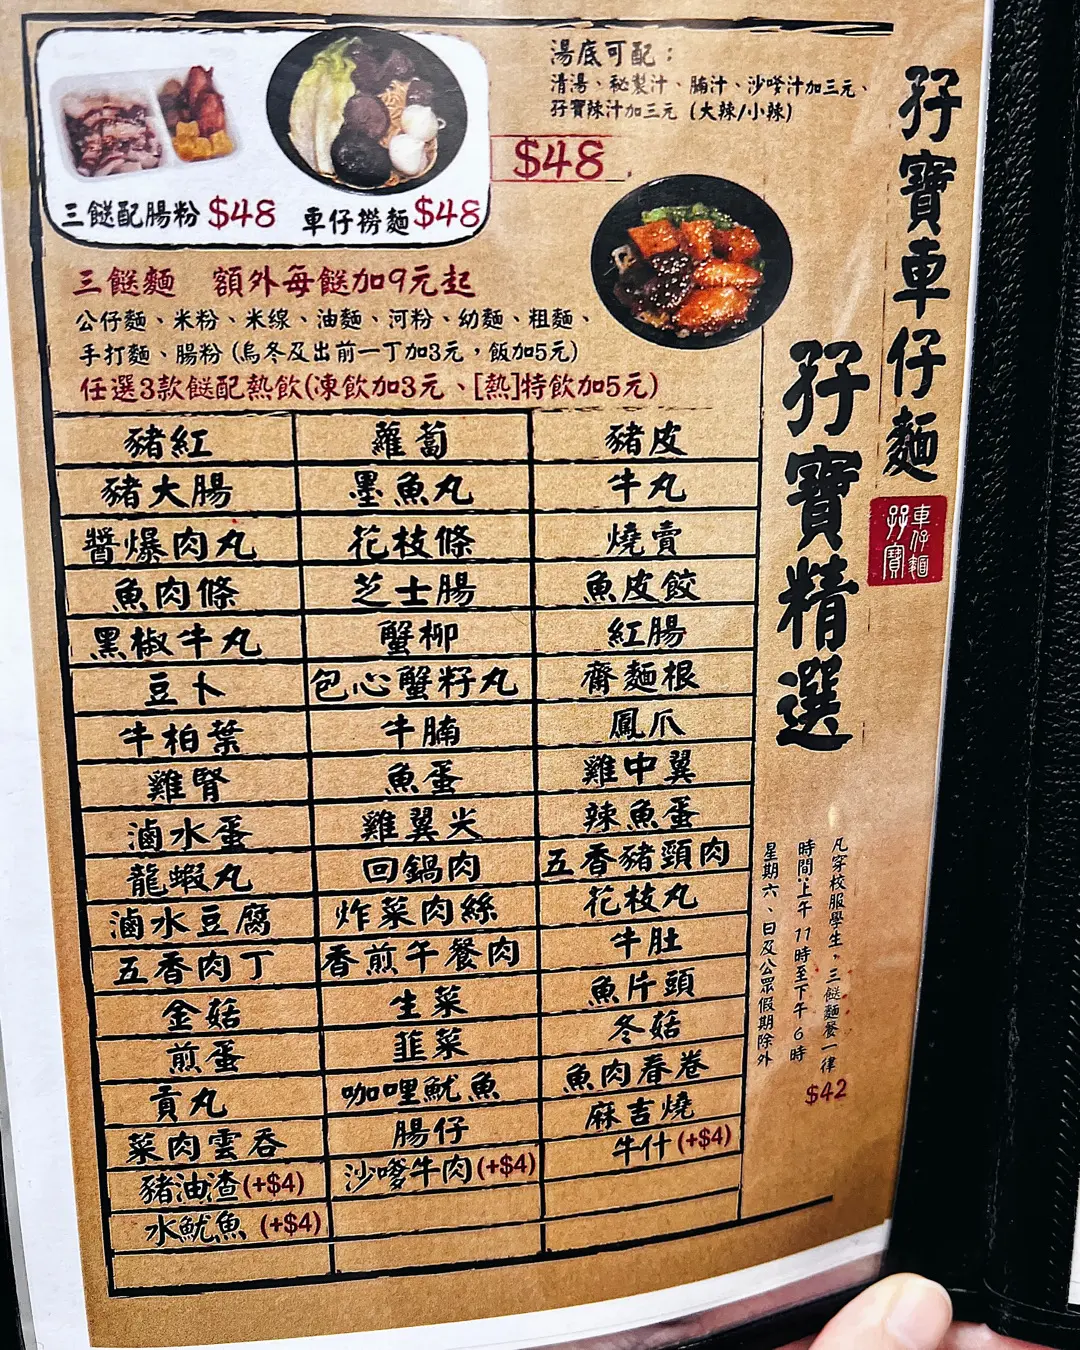 湯底可配：
清湯、秘製汁、腩汁、沙嗲汁加三元、
孖寶辣汁加三元（大辣/小辣）
$48
三餸配腸粉 $48
車仔撈麵 $48
三餸麵 額外每餸加9元起
公仔麵、米粉、米線、油麵、河粉、幼麵、粗麵、
手打麵、腸粉 (烏冬及出前一丁加3元，飯加5元)
任選3款餸配熱飲(凍飲加3元、[熱]特飲加5元)
豬紅 蘿蔔 豬皮
豬大腸 墨魚丸 牛丸
醬爆肉丸 花枝條 燒賣
魚肉條 芝士腸 魚皮餃
黑椒牛丸 蟹柳 紅腸
豆卜 包心蟹籽丸 齋麵根
牛柏葉 牛腩 鳳爪
雞腎 魚蛋 雞中翼
滷水蛋 雞翼尖 辣魚蛋
龍蝦丸 回鍋肉 五香豬頸肉
滷水豆腐 炸菜肉絲 花枝丸
五香肉丁 香煎午餐肉 牛肚
金菇 生菜 魚片頭
煎蛋 韮菜 冬菇
貢丸 咖哩魷魚 魚肉春卷
菜肉雲吞 腸仔 麻吉燒
豬油渣(+$4) 沙嗲牛肉(+$4) 牛什(+$4)
水魷魚 (+$4)
孖寶車仔麵
車仔麵
孖寶
孖寶精選
凡穿校服學生，三餸麵餐一律
$42
時間:上午11時至下午6時
星期六、日及公眾假期除外